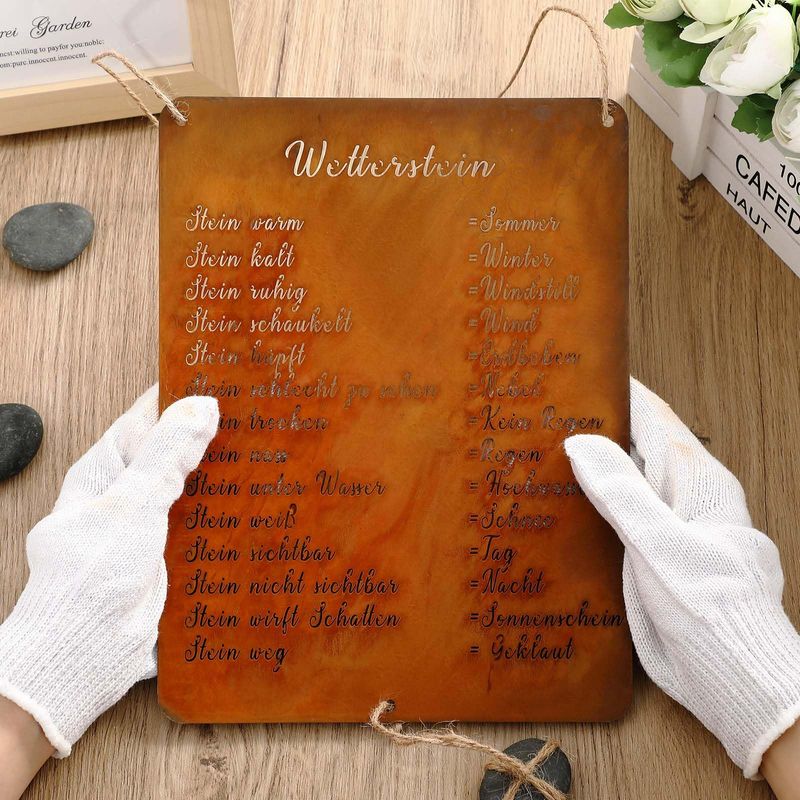 rei Garden
nest:willing to payfor you:noble:
om:pure.innocent.innocent.
Wetterstein
Stein warm =Sommer
Stein kalt =Winter
Stein ruhig =Windstill
Stein schaukelt =Wind
Stein hüpft =Erdbeben
Stein schlecht zu sehen =Nebel
Stein trocken =Kein Regen
Stein nass =Regen
Stein unter Wasser =Hochwasser
Stein weiß =Schnee
Stein sichtbar =Tag
Stein nicht sichtbar =Nacht
Stein wirft Schatten =Sonnenschein
Stein weg = Geklaut
100
CAFED
HAUT